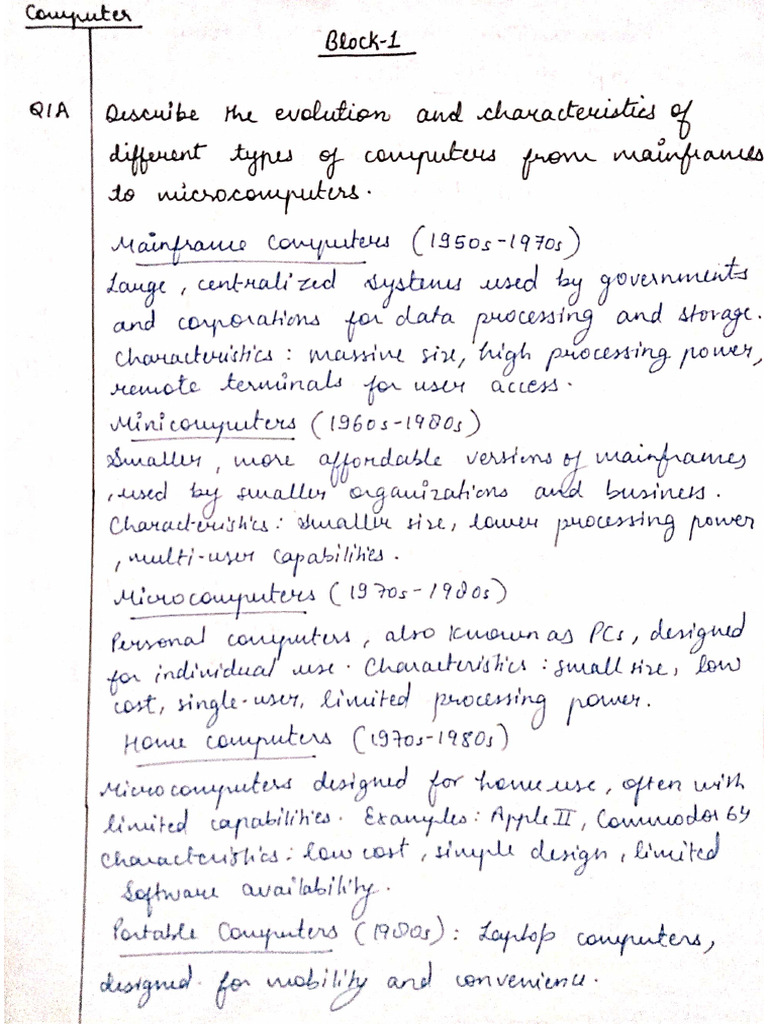 Computer
Block-1
Q1A Describe the evolution and characteristics of
different types of computers from mainframes
to microcomputers.
Mainframe Computers (1950s-1970s)
Large, centralized systems used by governments
and corporations for data processing and storage.
Characteristics: massive size, high processing power,
remote terminals for user access.
Minicomputers (1960s-1980s)
Smaller, more affordable versions of mainframes
, used by smaller organizations and business.
Characteristics: Smaller size, lower processing power
, multi-user capabilities.
Microcomputers (1970s-1980s)
Personal computers, also known as PCs, designed
for individual use. Characteristics: small size, low
cost, single-user, limited processing power.
Home computers (1970s-1980s)
Microcomputers designed for home use, often with
limited capabilities. Examples: Apple II, Commodor 64
Characteristics: low cost, simple design, limited
Software availability.
Portable Computers (1980s): Laptop computers,
designed for mobility and convenience.